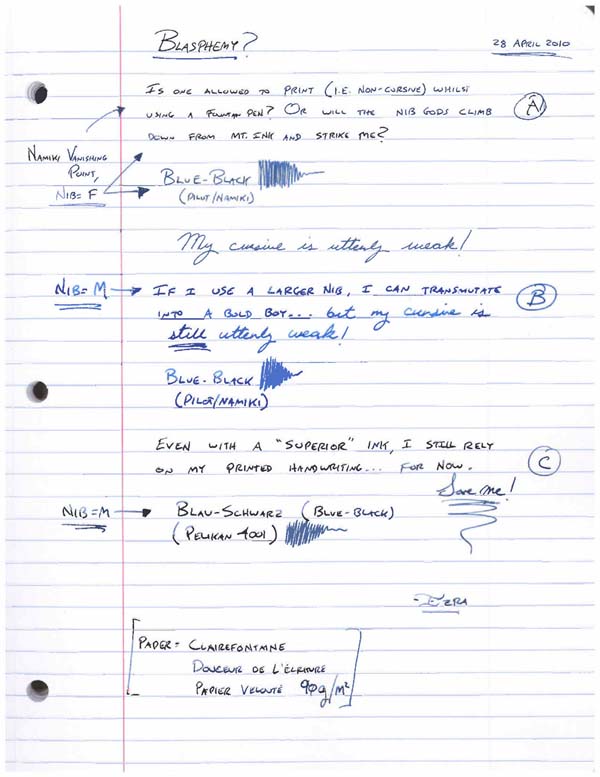 BLASPHEMY?
28 APRIL 2010
IS ONE ALLOWED TO PRINT (I.E. NON-CURSIVE) WHILST
USING A FOUNTAIN PEN? OR WILL THE NIB GODS CLIMB
DOWN FROM MT. INK AND STRIKE ME?
A
NAMIKI VANISHING
POINT,
NIB= F
BLUE-BLACK
(PILOT/NAMIKI)
My cursive is utterly weak!
NIB= M
IF I USE A LARGER NIB, I CAN TRANSMUTATE
INTO A BOLD BOY... but my cursive is
still utterly weak!
B
BLUE-BLACK
(PILOT/NAMIKI)
EVEN WITH A "SUPERIOR" INK, I STILL RELY
ON MY PRINTED HANDWRITING... FOR NOW.
C
Save me!
NIB=M
BLAU-SCHWARZ (BLUE-BLACK)
(PELIKAN 4001)
-EZRA
PAPER= CLAIREFONTAINE
DOUCEUR DE L'ÉCRITURE
PAPIER VELOUTÉ 90g/m²